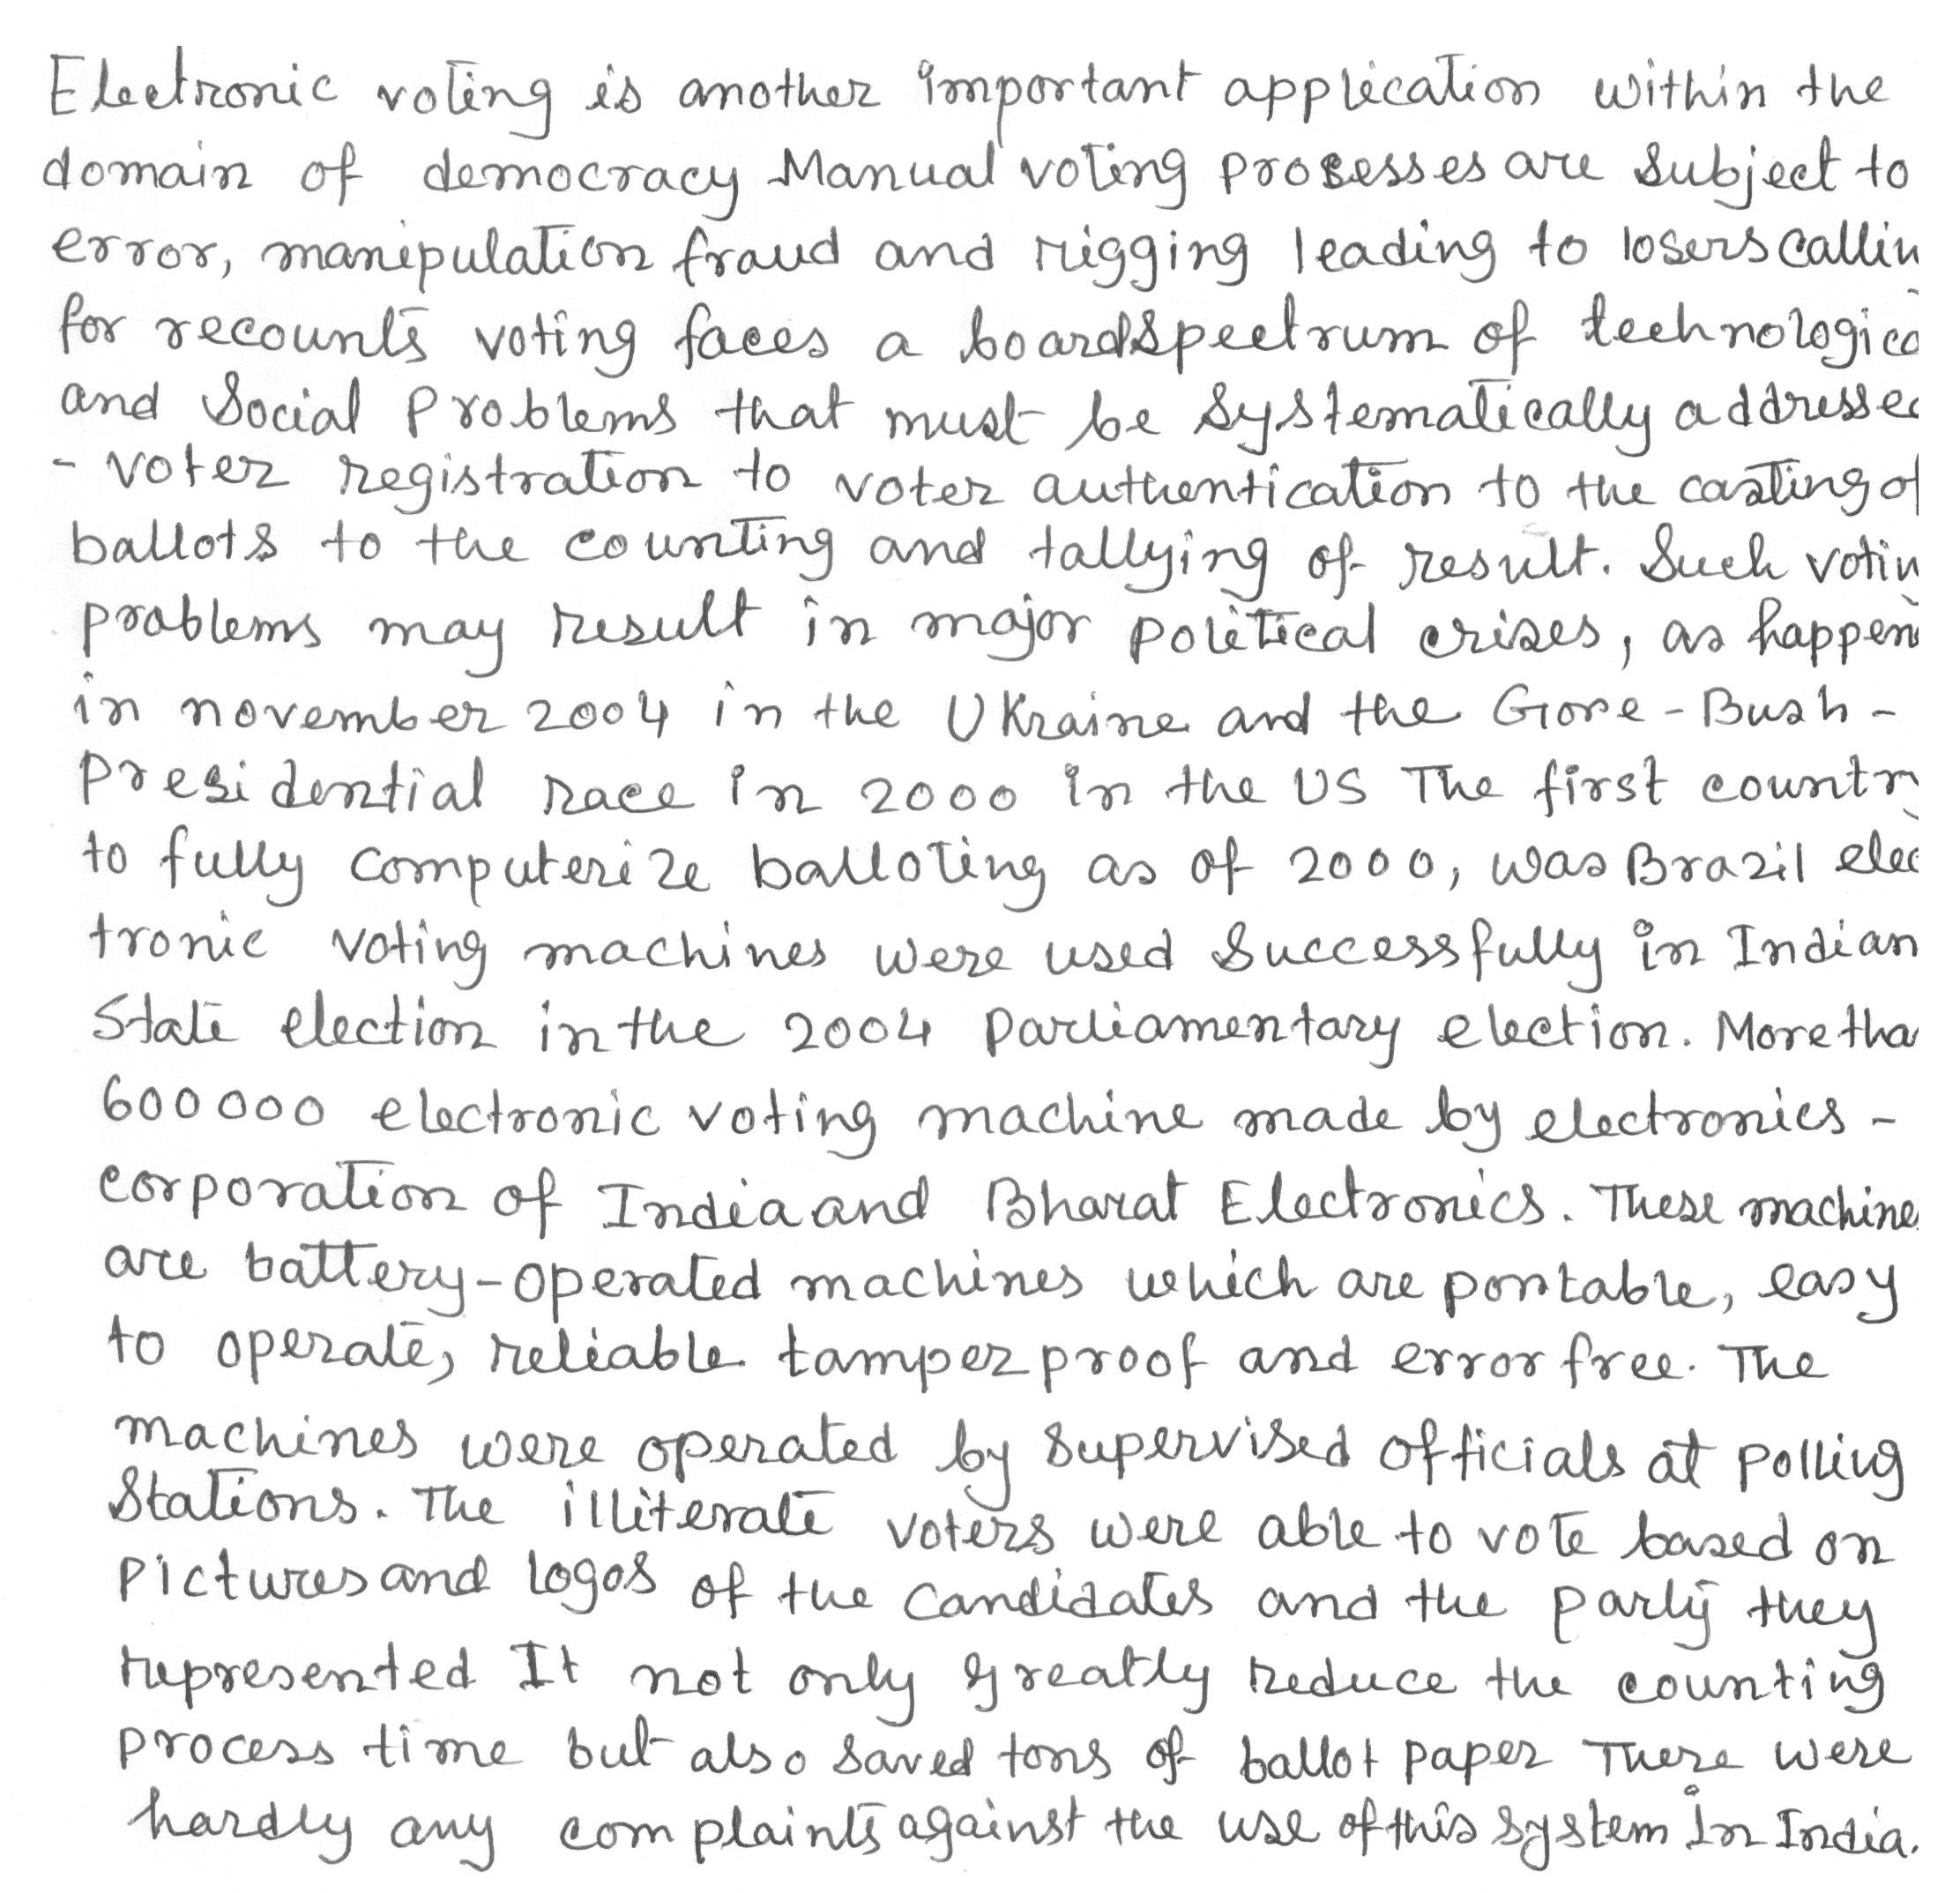 Electronic voting is another important application within the
domain of democracy Manual voting processes are subject to
error, manipulation fraud and rigging leading to losers callin
for recounts voting faces a boardspectrum of technologica
and Social Problems that must be systematically addresse
- voter registration to voter authentication to the casting of
ballots to the counting and tallying of result. Such votin
problems may result in major political crises, as happen
in november 2004 in the UKraine and the Gore-Bush-
Presidential race in 2000 in the US The first countr
to fully computerize balloting as of 2000, was Brazil elec
tronic voting machines were used successfully in Indian
State election in the 2004 parliamentary election. More tha
600000 electronic voting machine made by electronics -
corporation of India and Bharat Electronics. These machine
are battery-operated machines which are portable, easy
to operate, reliable tamperproof and error free. The
machines were operated by supervised officials at polling
Stations. The illiterate voters were able to vote based on
Pictures and logos of the candidates and the party they
represented It not only greatly reduce the counting
process time but also saved tons of ballot paper There were
hardly any complaints against the use of this system in India.